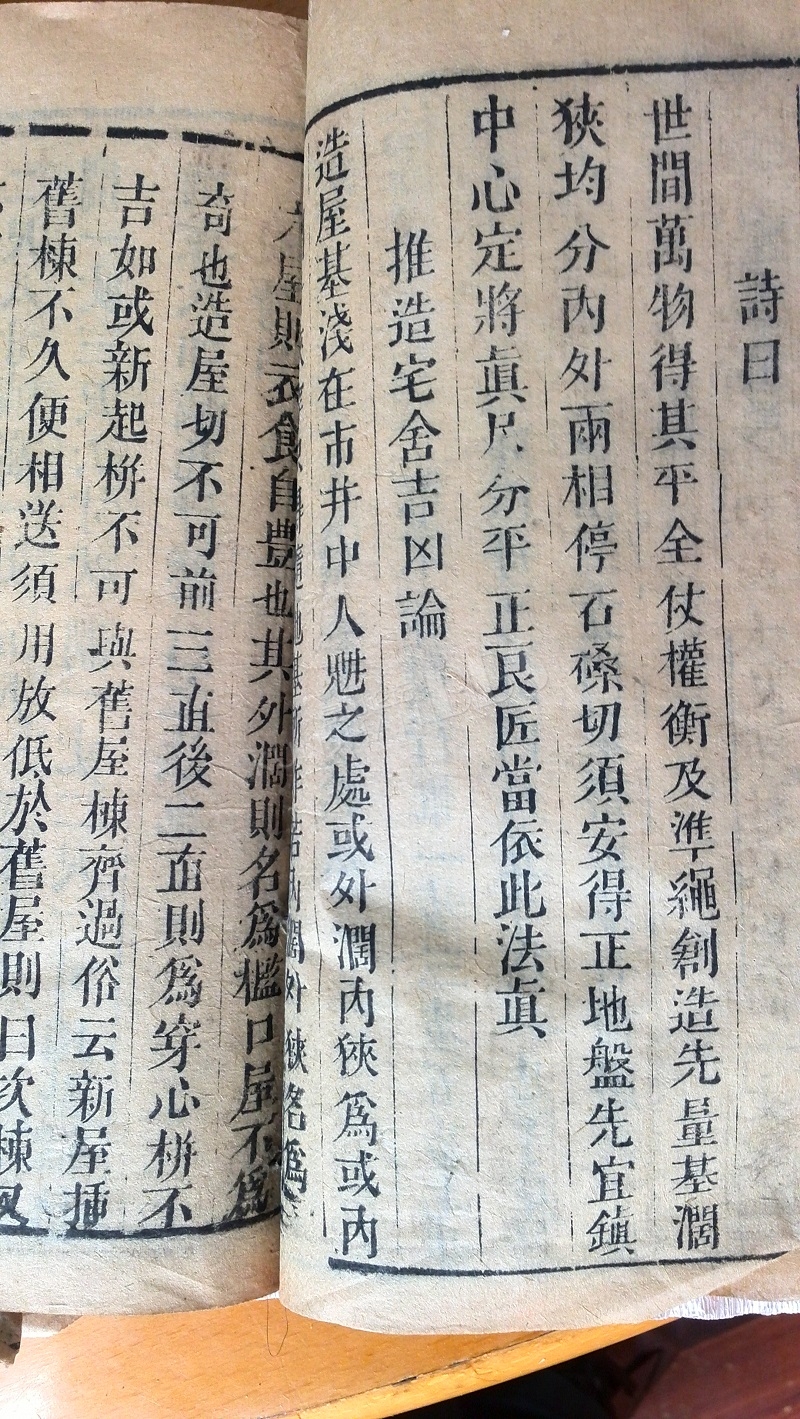 詩曰
世間萬物得其平全仗權衡及準繩創造先量基濶
狹均分內外兩相停石磉切須安得正地盤先宜鎮
中心定將眞尺分平正良匠當依此法眞
推造宅舍吉凶論
造屋基淺在市井中人魁之處或外濶內狹爲或內
濶外狹名爲
屋則衣食自豊也其外濶則名爲檻口屋不爲
奇也造屋切不可前三直後二直則爲穿心栟不
吉如或新起栟不可與舊屋棟齊過俗云新屋插
舊棟不久便相送須用放低於舊屋則曰次棟又